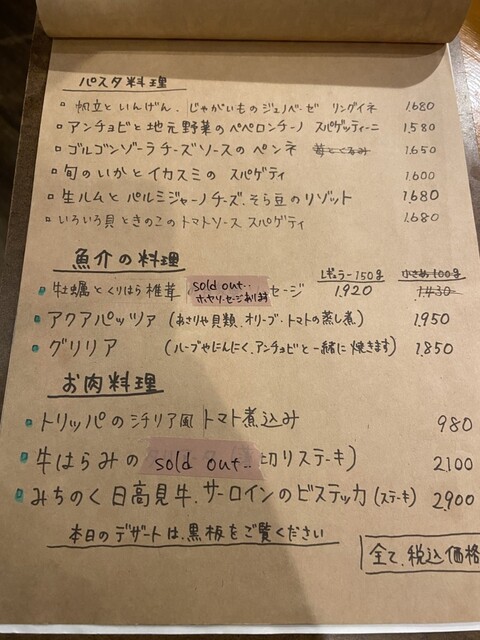 パスタ料理
帆立といんげん、じゃがいものジェノベーゼ リングイネ 1.680
アンチョビと地元野菜のペペロンチーノ スパゲッティーニ 1,580
ゴルゴンゾーラチーズソースのペンネ 苺とくるみ 1.650
旬のいかとイカスミの スパゲティ 1.600
生ハムとパルミジャーノチーズ、そら豆のリゾット 1,680
いろいろ貝ときのこのトマトソース スパゲティ 1.680
魚介の料理 レギュラー150g 小さめ100g
牡蠣とくりはら椎茸 sold out.. セージ 1.920 1.430
ホヤソーセージあります
アクアパッツァ (あさりや貝類、オリーブ・トマトの蒸し煮) 1,950
グリリア (ハーブやにんにく、アンチョビと一緒に焼きます) 1,850
お肉料理
トリッパのシチリア風トマト煮込み 980
牛はらみの sold out.. 切りステーキ) 2,100
みちのく日高見牛、サーロインのビステッカ(ステーキ) 2,900
本日のデザートは、黒板をご覧ください
全て、税込価格